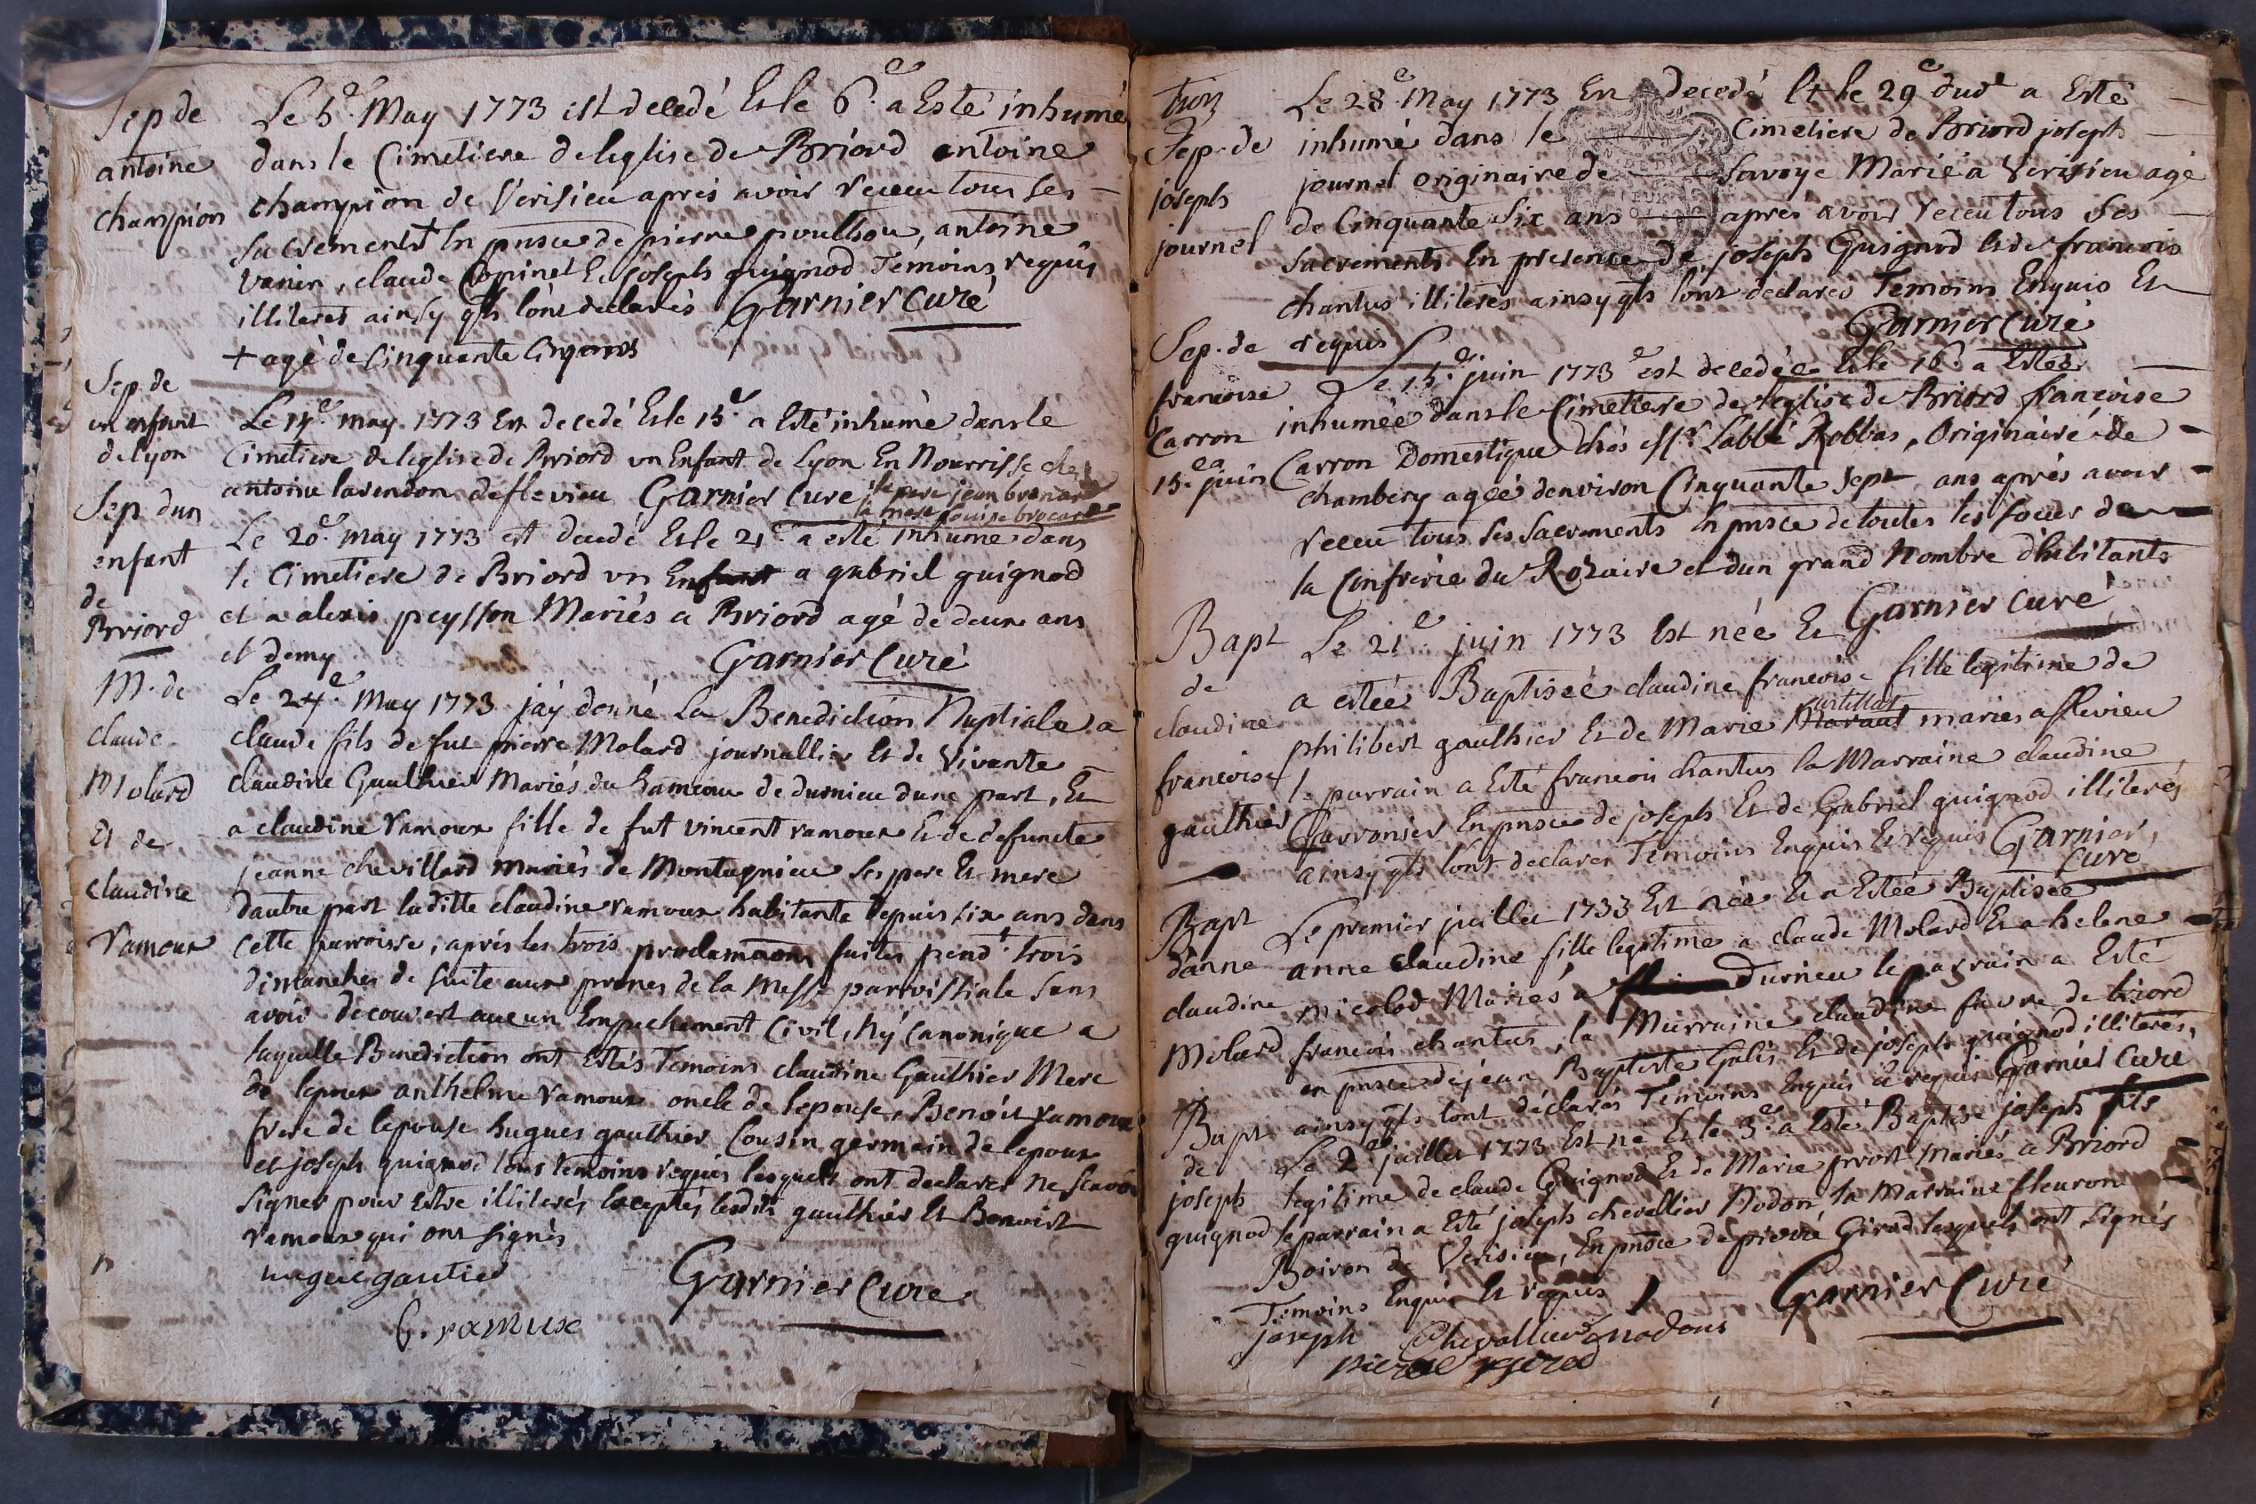 Sep de
antoine
champion
Le 5e May 1773 est decedé Et le 6.e a Esté inhumé
dans le Cimetiere de leglise de Briord antoine
champion de Verisieu aprés avoir receu tous ses
sacrements + En pnsce de pierre poulliou, antoine
vanin, claude Copinet Et joseph guignod Temoins requis
illiterés ainsy qls l'ont declarés Garnier Curé
+ agé de Cinquante Cinq ans
Sep. de
un enfant
de lyon
Le 14e may 1773 Est decedé Et le 15e a Esté inhumé dans le
Cimetiere de leglise de Briord un Enfant de Lyon En Nourrisse chez
antoine larendon de flevieu Garnier Curé
le pere jean
la mere louise
Sep dun
enfant
de
Briord
Le 20e may 1773 est decedé Et le 21e a esté inhumé dans
le Cimetiere de Briord un Enfant a gabriel guignod
et a alexis peysson Mariés a Briord agé de deux ans
et demy
Garnier Curé
M. de
claude
Molard
Et de
claudine
Vamoux
Le 24e May 1773 j'ay donné La Benediction Nuptiale a
claude fils de fut pierre Molard journallier Et de Vivante
claudine Gaulthier Mariés du hameau de durnieu dune part, Et
a claudine Vamoux fille de fut vincent vamoux Et de defuncte
jeanne chevillard mariés de Montagnieu ses pere Et mere
dautre part laditte claudine vamoux habitante depuis six ans dans
cette parroisse, aprés les trois proclamaons faites pendt trois
dimanches de suite aux prones de la Messe parroissiale sans
avoir decouvert aucun Empechement Civil, Ny Canonique a
laquelle Benediction ont Estés Temoins claudine Gaulthier Mere
de lepoux anthelme vamoux oncle de lepouse, Benoit vamoux
frere de lepouse hugues gaulthier Cousin germain de lepoux
et joseph guignod tous temoins requis lesquels ont declarés ne scavoir
signer pour Estre illiterés Exceptés lesdits gaulthier Et Benoist
vamoux qui ont signés
hugue gautier
Garnier Curé
b. ramux
Sep. de
joseph
journel
Le 28e May 1773 Est decedé Et le 29e dudt a Esté
inhumé dans le Cimetiere de Briord joseph
journel originaire de Savoye Marié a Verisieu agé
de Cinquante Six ans aprés avoir receu tous ses
Sacrements En presence de joseph Guignod et de francois
chantus illiterés ainsy qls l'ont declarés Temoins Enquis Et
requis
Garnier Curé
Sep. de
francoise
Carron
15e juin
Le 15e juin 1773 est decedée Et le 16e a Estée
inhumée dans le Cimetiere de leglise de Briord francoise
Carron Domestique chés Mr Labbé Robbas, Originaire de
chambery agée denviron Cinquante Sept ans aprés avoir
receu tous ses Sacrements En pnsce de toutes les soeurs de
la Confrérie du Rozaire et dun grand Nombre d'hibitants
Garnier Curé
Bapt
de
claudine
francoise
gaulthier
Le 21e juin 1773 Est née Et
a estée Baptisée claudine francoise fille legitime de
philibert gaulthier Et de Marie mariés a flevieu
le parrain a Esté francois chantus la Marraine claudine
Carronier En pnsce de joseph Et de Gabriel guignod illiterés
ainsy qls l'ont declarés Temoins Enquis Et requis Garnier
Curé
Bapt
d'anne
claudine
Molard
Le premier juillet 1733 Est née Et a Estée Baptisée
anne claudine fille legitime a claude Molard Et a helene
nicolod Mariés a Durnieu le parrain a Esté
francois chantus, la Marraine claudine favre de briord
en pnsce de jean Baptiste Galés Et de joseph guignod illiterés,
ainsy qls l'ont declarés Temoins Enquis et requis Garnier Curé
Bapt
de
joseph
guignod
Le 2e juillet 1773 Est né Et le 3e a Esté Baptisé joseph fils
legitime de claude Guignod Et de Marie prvost Mariés a Briord
le parrain a Esté joseph chevallier Nodon, la Marraine fleuron
Boiron de Verisieu, En pnsce de pierre Girod lesquels ont signés
Temoins Enquis Et requis
Garnier Curé
joseph Chevallier nodons
pierre girod